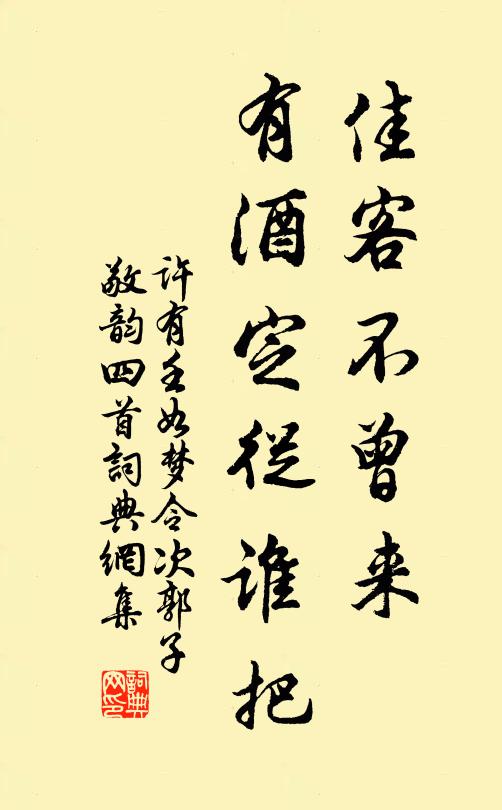 佳客不曾来
有酒定從谁把
许有壬如梦令次郭子
敬韵四首詞典網集
詞典
网印